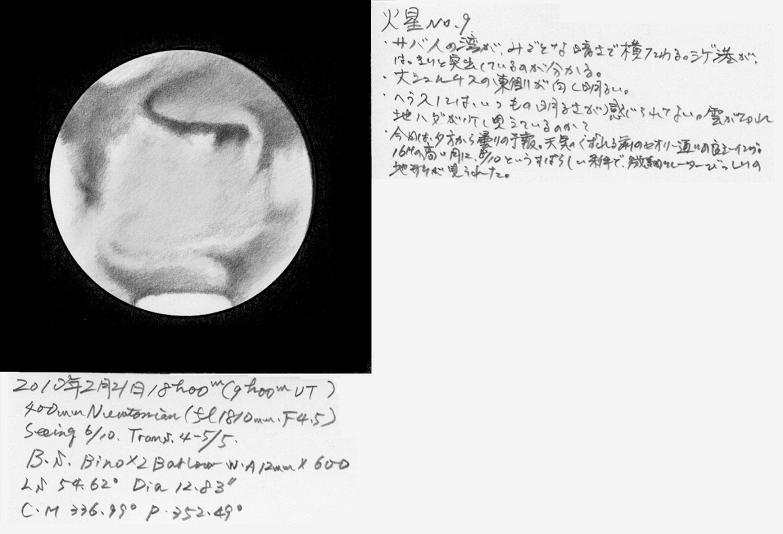 火星 No.9
・サバ人の湾が、みごとな暗さで横たわる。シゲ港が、
はっきりと突出しているのが分かる。
・大シュルチスの東側が白く明るい。
・ヘラスにはいつもの明るさが感じられない。雲が
地ハダが 見えているのか?
・今日は、夕方から曇りの予報。天気 前のセオリー通りの
高い 月に、6/10というすばらしい条件で、 クレーター の
地形が見られた。
2010年2月21日18h00m(9h00m UT)
400mm Newtonian (fl 1810mm. F4.5)
Seeing 6/10. Trans. 4-5/5.
B.S. Bino×2 Barlow W.A 12mm × 600
LS 54.62° Dia 12.83"
C.M 336.99° P. 352.49°